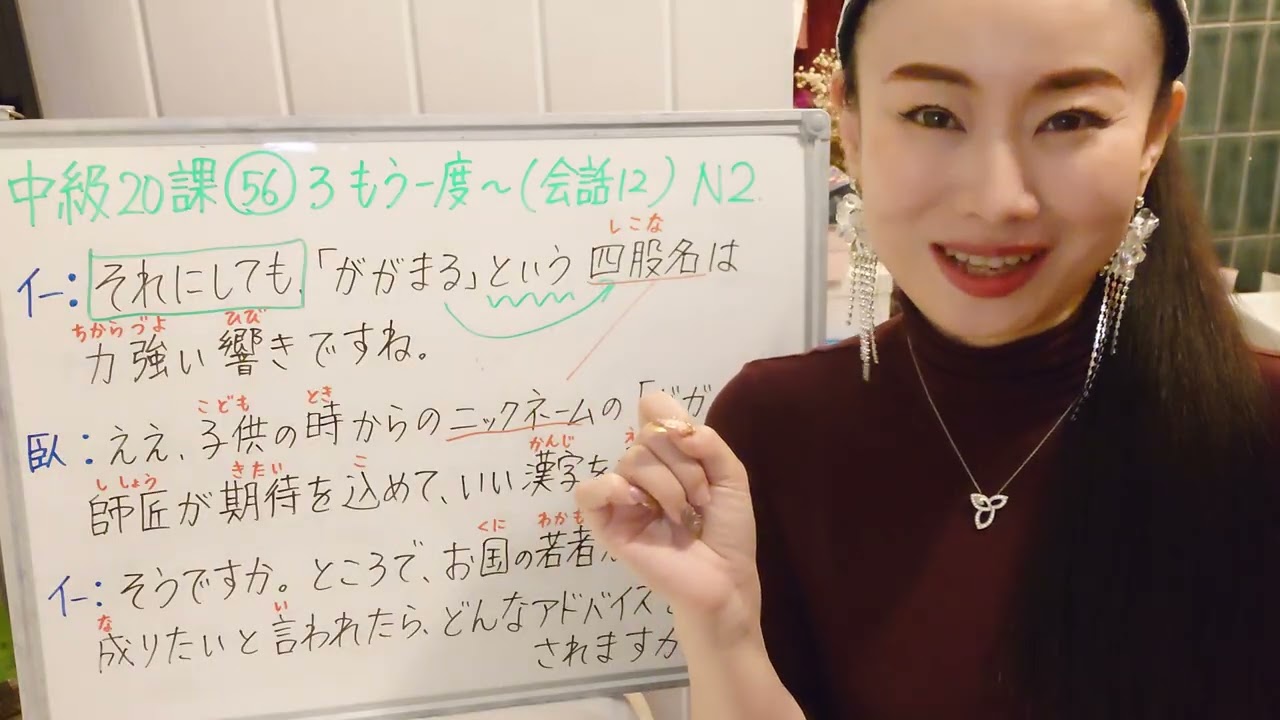 中級20課 56 3 もう一度~(会話12) N2.
しこな
イー: それにしても、「ががまる」という四股名は
ちから づよ ひび
力強い響きですね。
こども とき
臥: ええ、子供の時からのニックネームの「ガガ
ししょう きたい こ かんじ
師匠が期待を込めて、いい漢字を
くに わかも
イー: そうですか。ところで、お国の若者
な い
成りたいと言われたら、どんなアドバイス
されますか